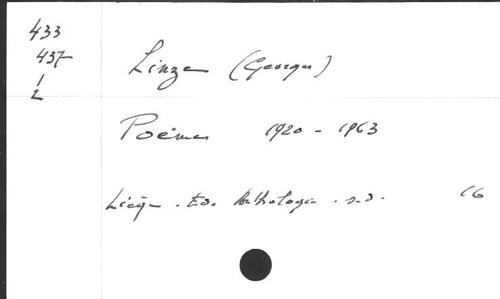 433
437
1
2
Linze (Georges)
Poèmes 1920 - 1963
Liège. Ed. Anthologie. s.d. 16